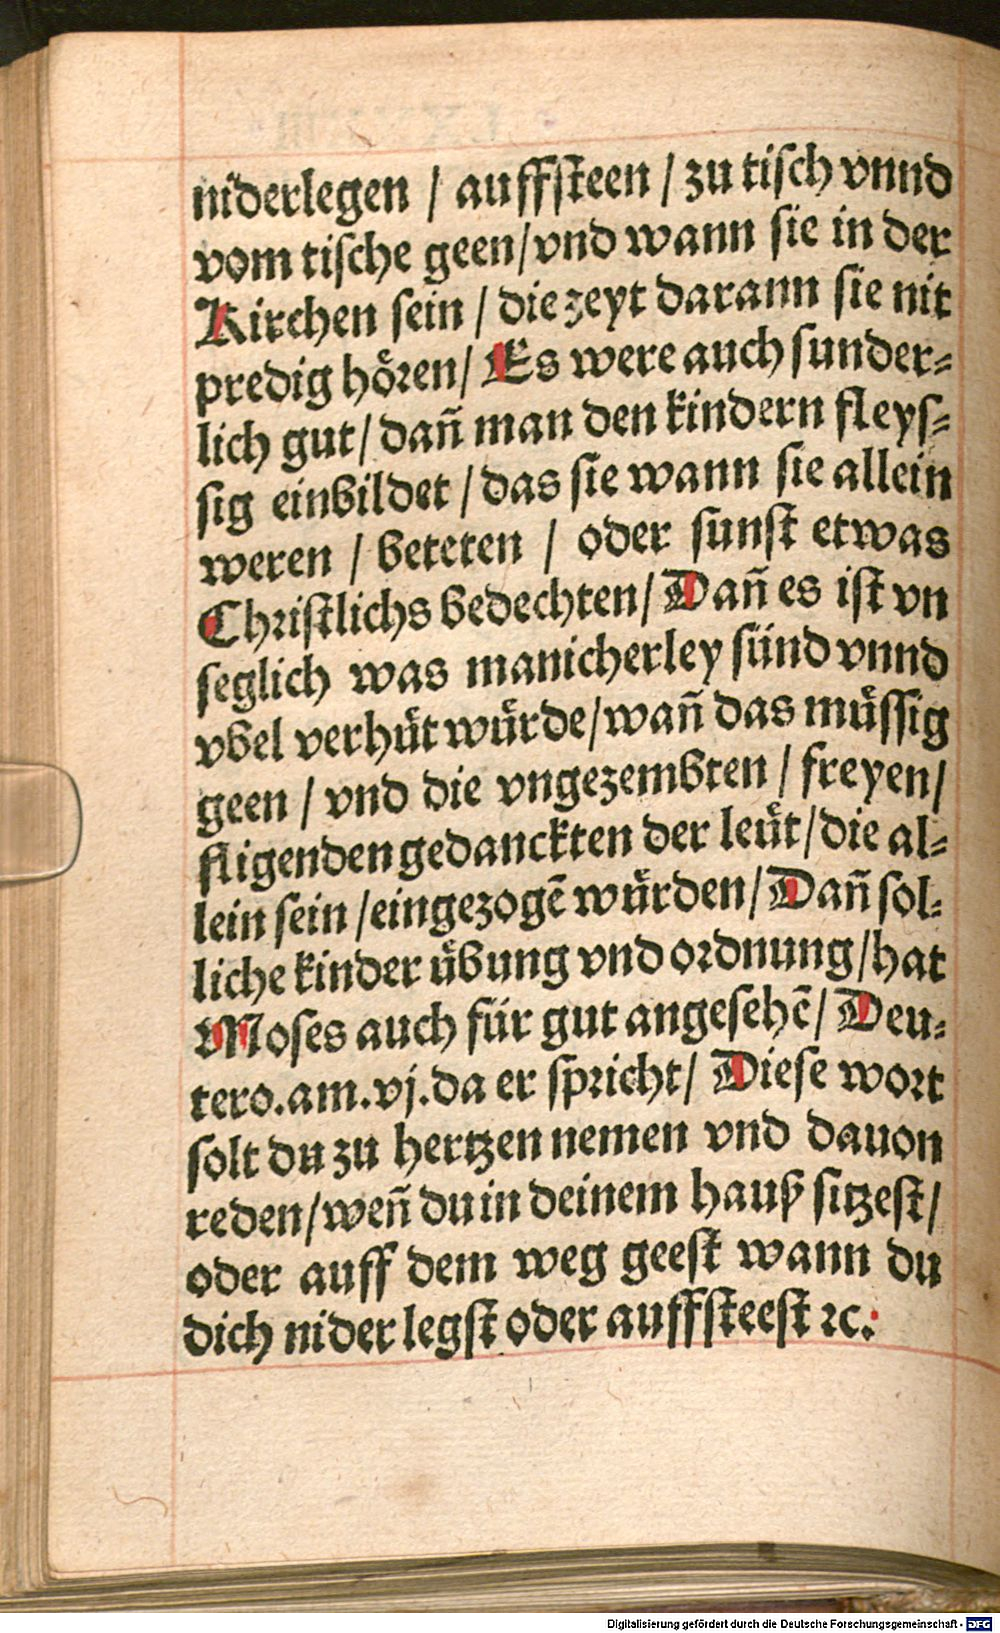 niderlegen / auffſteen / zu tiſch vnnd
vom tiſche geen / vnd wann ſie in der
Kirchen ſein / die zeyt darann ſie nit
predig hoͤren / Es were auch ſunder⸗
lich gut / dañ man den kindern fleyſ⸗
ſig einbildet / das ſie wann ſie allein
weren / beteten / oder ſunſt etwas
Chriſtlichs bedechten / Dañ es iſt vn
ſeglich was manicherley ſünd vnnd
vbel verhuͤt wuͤrde / wañ das muͤſſig
geen / vnd die vngezembten / freyen /
fligenden gedanckten der leuͤt / die al⸗
lein ſein / eingezogē wuͤrden / Dañ ſol⸗
liche kinder uͤbung vnd ordnung / hat
Moſes auch für gut angeſehē / Deu⸗
tero.am.vj.da er ſpricht / Dieſe wort
ſolt du zu hertzen nemen vnd dauon
reden / weñ du in deinem hauß ſitzeſt /
oder auff dem weg geeſt wann du
dich nider legſt oder auffſteeſt ꝛc.
Digitalisierung gefördert durch die Deutsche Forschungsgemeinschaft - DFG